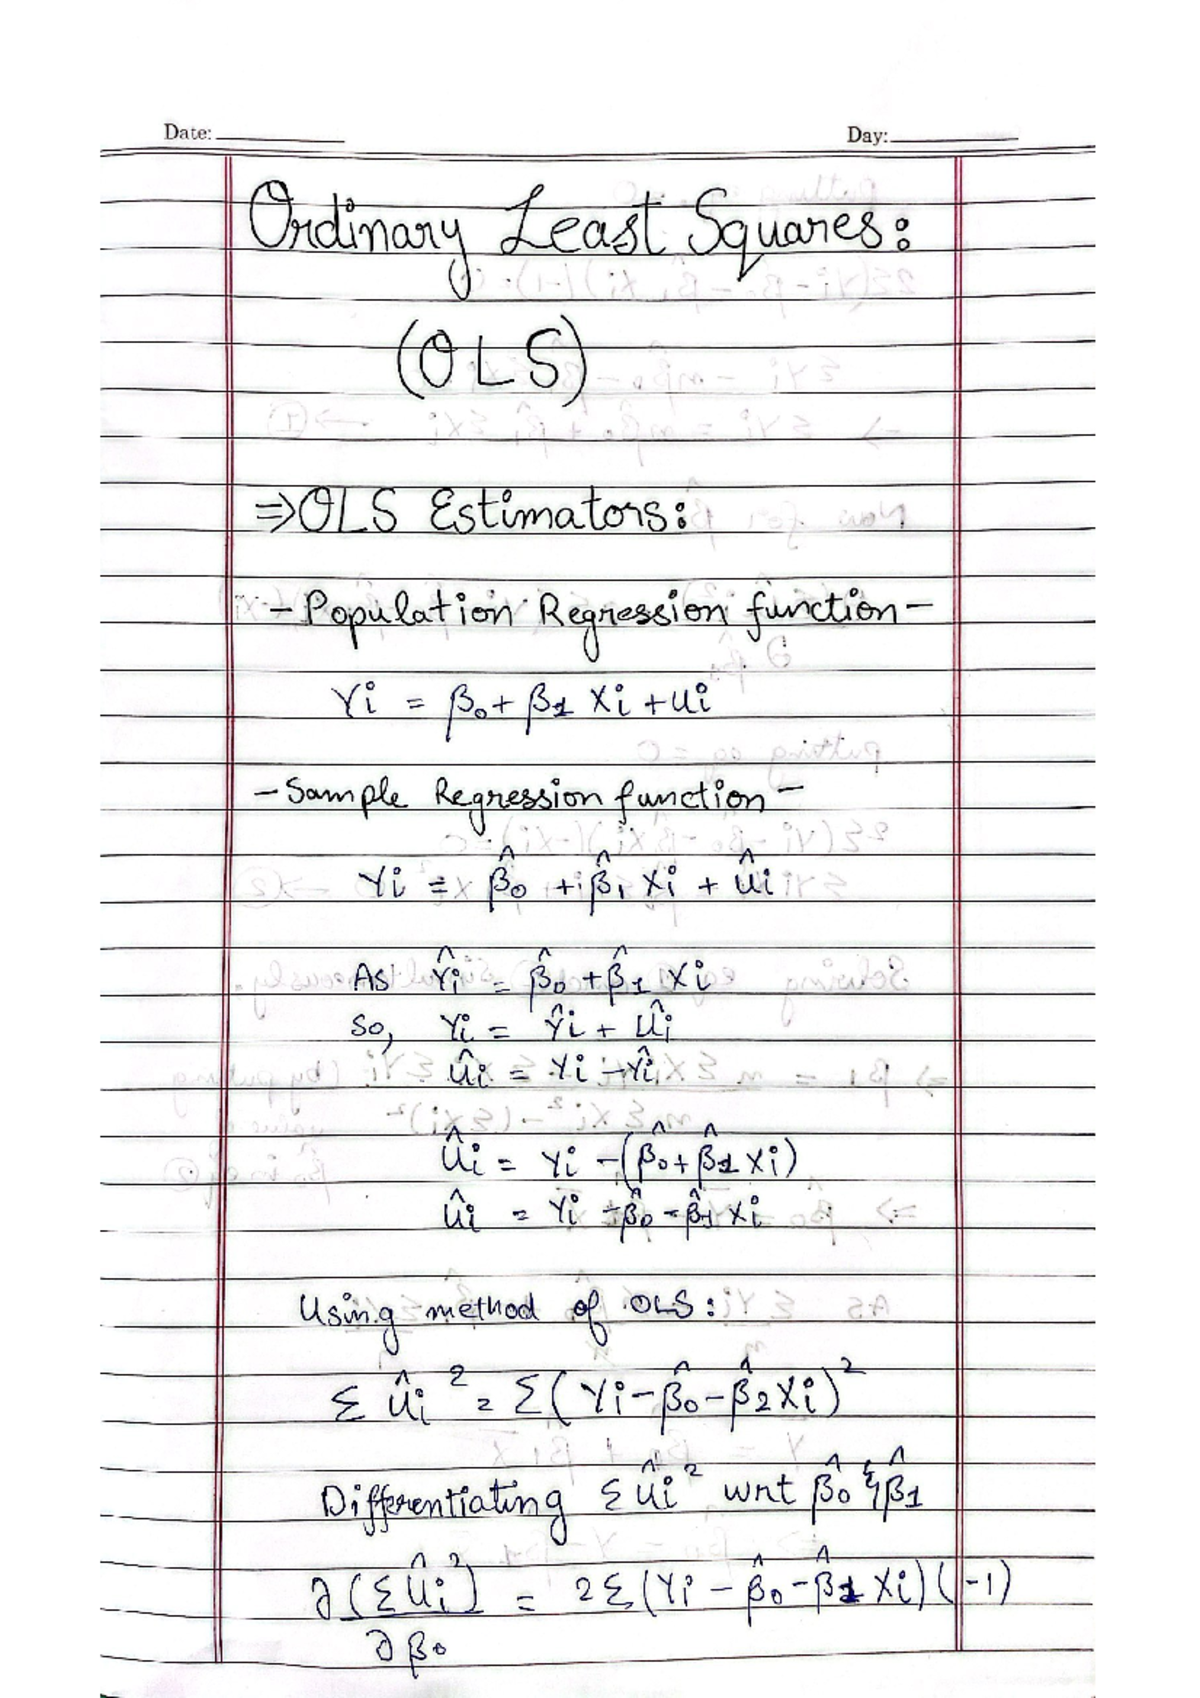 Date:
Day:
Ordinary Least Squares:
(OLS)
⇒OLS Estimators:
- Population Regression function -
Yi = β₀ + β₁ Xi + ui
- Sample Regression function -
Yi = β̂₀ + β̂₁ Xi + ûi
As Ŷi = β̂₀ + β̂₁ Xi
So, Yi = Ŷi + ûi
ûi = Yi - Ŷi
ûi = Yi - (β̂₀ + β̂₁ Xi)
ûi = Yi - β̂₀ - β̂₁ Xi
Using method of OLS:
Σ ûi² = Σ( Yi - β̂₀ - β̂₂ Xi)²
Differentiating Σ ûi² wrt β̂₀ & β̂₁
∂(Σ ûi²) = 2Σ(Yi - β̂₀ - β̂₁ Xi)(-1)
∂ β₀